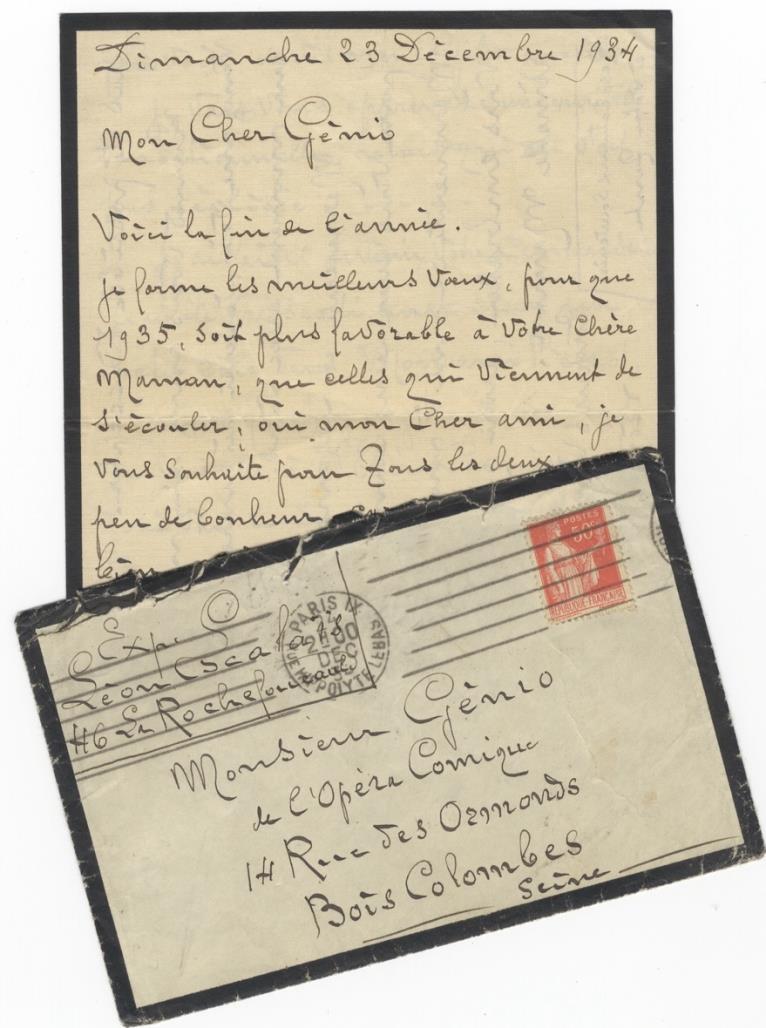 Dimanche 23 Décembre 1934
Mon Cher Génio
Voici la fin de l'année.
je forme les meilleurs Vœux, pour que
1935, soit plus favorable à Votre Chère
Maman, que celles qui Viennent de
s'écouler; oui mon Cher ami, je
Vous Souhaite pour Tous les deux
peu de bonheur
POSTES
50c
REPUBLIQUE FRANÇAISE
PARIS IX
DEC
HIPPOLYTE LEBAS
Exp.
Léon
46 La Rochefoucauld
Monsieur Génio
de l'Opéra Comique
14 Rue des Ormonds
Bois Colombes
Seine